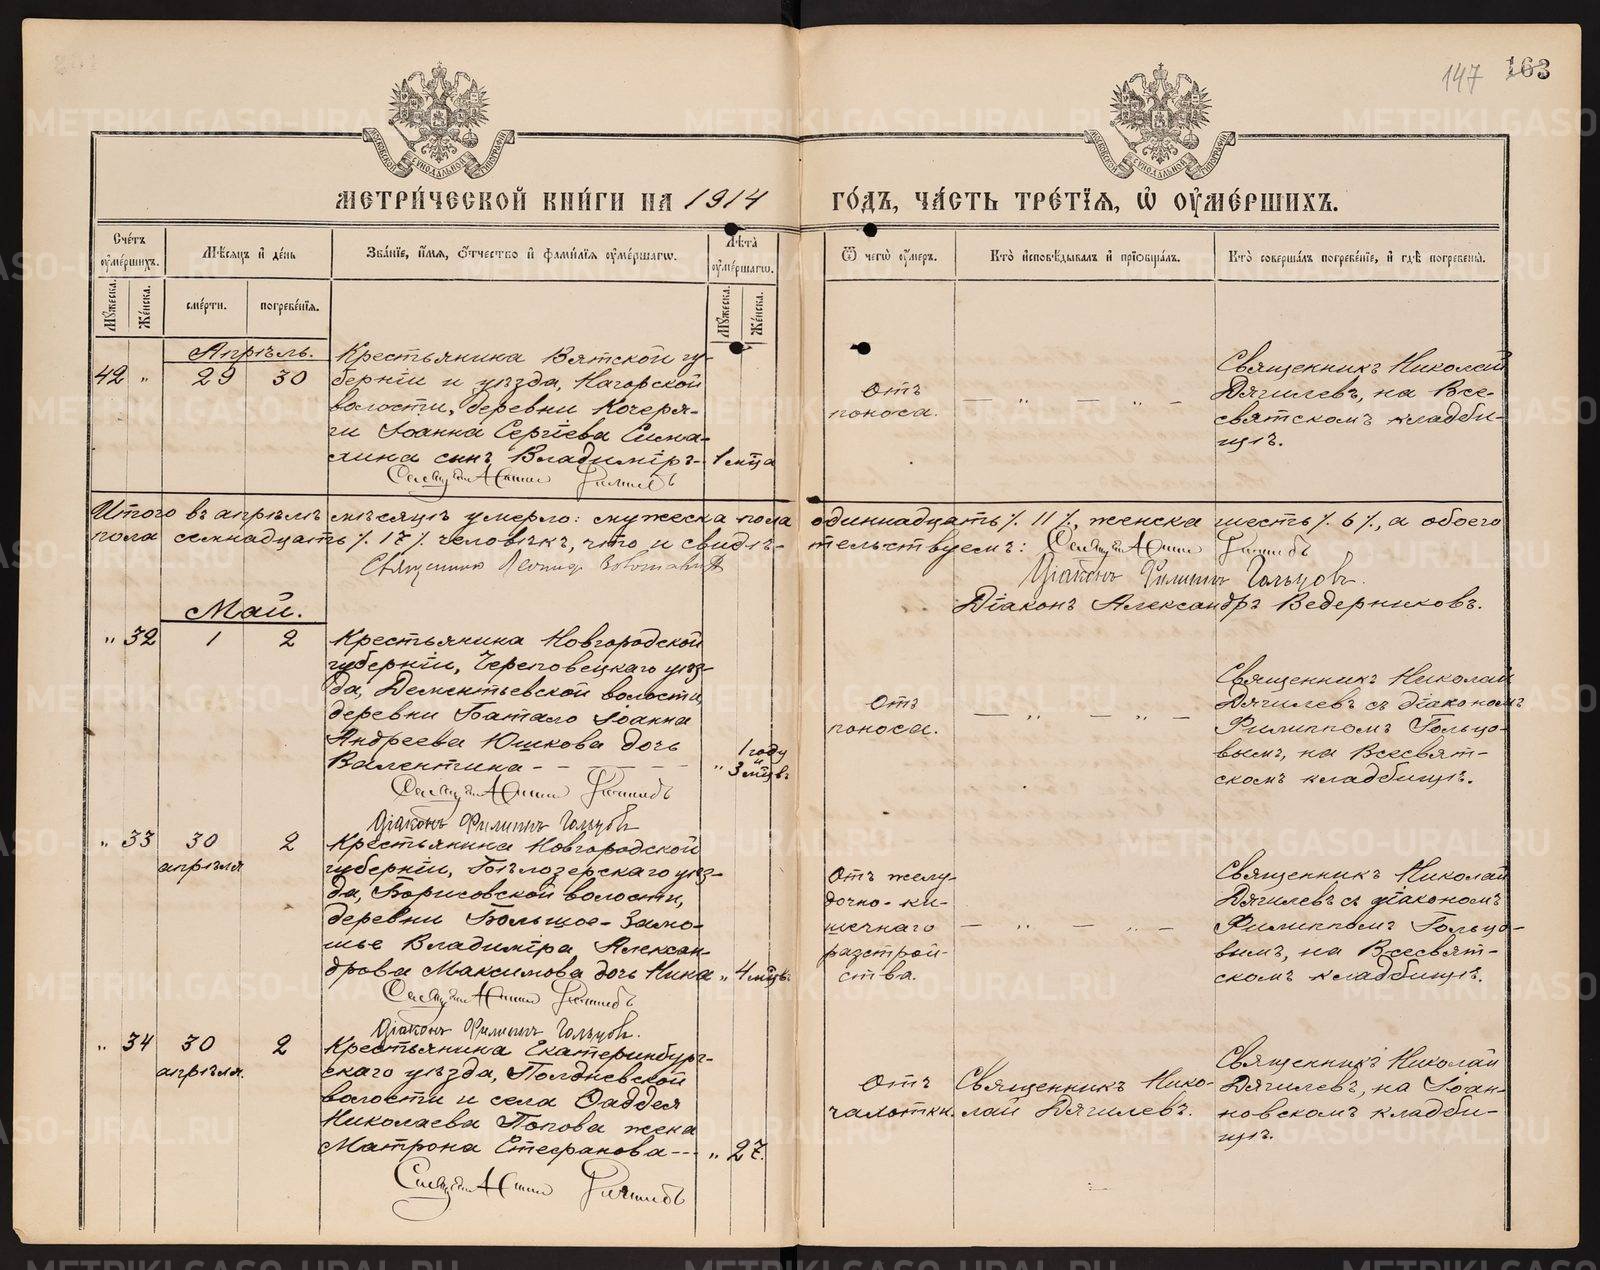 147 163
МОСКОВСКОЙ СѴНОДАЛЬНОЙ ТИПОГРАФІИ
МОСКОВСКОЙ СѴНОДАЛЬНОЙ ТИПОГРАФІИ
МЕТРИ́ЧЕСКОЙ КНИ́ГИ НА 1914 ГО́ДЪ, ЧА́СТЬ ТРЕ́ТЇѦ, Ѡ҆ ОУ҆МЕ́РШИХЪ.
Сче́тъ оу҆ме́ршихъ.
Мꙋ́жеска.
Же́нска.
Мѣ́сяцъ и҆ де́нь
сме́рти.
погребе́нїѧ.
Зва́нїе, и҆́мѧ, ѻ҆́тчество и҆ фами́лїѧ оу҆ме́ршагѡ.
Лѣ́та оу҆ме́ршагѡ.
Мꙋ́жеска.
Же́нска.
Ѿ чегѡ̀ оу҆́меръ.
Кто̀ и҆сповѣ́дывалъ и҆ прїѻбща́лъ.
Кто̀ соверша́лъ погребе́нїе, и҆ гдѣ̀ погребены̀.
Апрѣль.
42 " 29 30
Крестьянина Вятской гу-
берніи и уѣзда, Нагорской
волости, деревни Кочеря-
ги Іоанна Сергіева Сима-
хина сынъ Владиміръ- 1 мца
Отъ
поноса.
— " — " —
Священникъ Николай
Дягилевъ, на Все-
святскомъ кладби-
щѣ.
Итого въ апрѣлѣ мѣсяцѣ умерло: мужеска пола одиннадцать /. 11 /., женска шесть /. 6 /., а обоего
пола семнадцать /. 17 /. человѣкъ, что и свидѣ-
тельствуемъ:
Священник Леонид
Діаконъ Филиппъ Гольцовъ.
Діаконъ Александръ Ведерниковъ.
Май.
" 32 1 2
Крестьянина Новгородской
губерніи, Череповецкаго уѣз-
да, Дементьевской волости,
деревни Батало Іоанна
Андреева Юшкова дочь
Валентина - - - - - " 1 году и 3 мцвъ
Діаконъ Филиппъ Гольцовъ
Отъ
поноса.
— " — " —
Священникъ Николай
Дягилевъ съ діакономъ
Филиппомъ Гольцо-
вымъ, на Всесвят-
скомъ кладбищѣ.
" 33 30 2
апрѣля
Крестьянина Новгородской
губерніи, Бѣлозерскаго уѣз-
да, Борисовской волости,
деревни Большое-Замо-
шье Владиміра Алексан-
дрова Максимова дочь Нина " 4 мцвъ
Діаконъ Филиппъ Гольцовъ.
Отъ желу-
дочно-ки-
шечнаго
разстрой-
ства.
— " — " —
Священникъ Николай
Дягилевъ съ діакономъ
Филиппомъ Гольцо-
вымъ, на Всесвят-
скомъ кладбищѣ.
" 34 30 2
апрѣля.
Крестьянина Екатеринбург-
скаго уѣзда, Полдневской
волости и села Фаддея
Николаева Попова жена
Матрона Стефанова - - - " 27.
Отъ
чахотки.
Священникъ Нико-
лай Дягилевъ.
Священникъ Николай
Дягилевъ, на Іоан-
новскомъ кладби-
щѣ.
METRIKI.GASO-URAL.RU